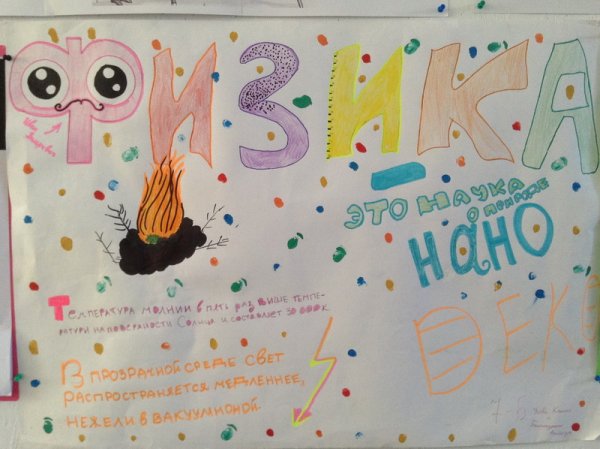 ФИЗИКА
ЭТО НАУКА
О ПРИРОДЕ
НАНО
ДЕКА
Температура молнии в пять раз выше темпе-
ратуры на поверхности Солнца и составляет 30 000К.
В прозрачной среде свет
распространяется медленнее,
нежели в вакуумной.
7-